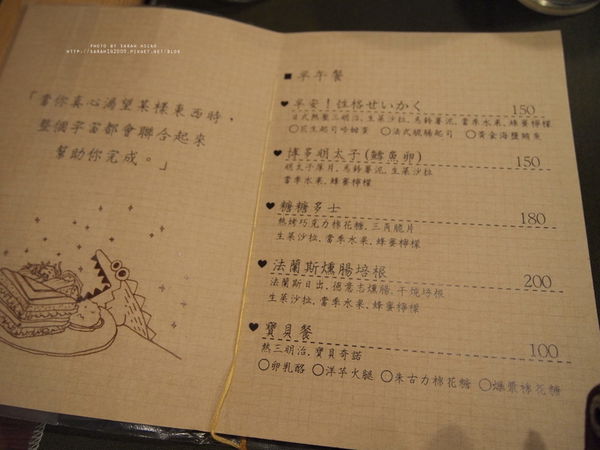 PHOTO BY SARAH HSIAO
HTTP://SARAHIN2009.PIXNET.NET/BLOG
「當你真心渴望某樣東西時，
整個宇宙都會聯合起來
幫助你完成。」
■ 早午餐
♥ 早安！性格せいかく 150
日式熱壓三明治,生菜沙拉,馬鈴薯泥,當季水果,蜂蜜檸檬
○花生起司哈甜蜜 ○法式脆腸起司 ○黃金海鹽鮪魚
♥ 博多明太子(鱈魚卵) 150
明太子厚片,馬鈴薯泥,生菜沙拉
當季水果,蜂蜜檸檬
♥ 糖糖多士 180
熱烤巧克力棉花糖,三角脆片
生菜沙拉,當季水果,蜂蜜檸檬
♥ 法蘭斯燻腸培根 200
法蘭斯日出,德意志燻腸,干燒培根
生菜沙拉,當季水果,蜂蜜檸檬
♥ 寶貝餐 100
熱三明治,寶貝奇諾
○卵乳酪 ○洋芋火腿 ○朱古力棉花糖 ○燻漿棉花糖